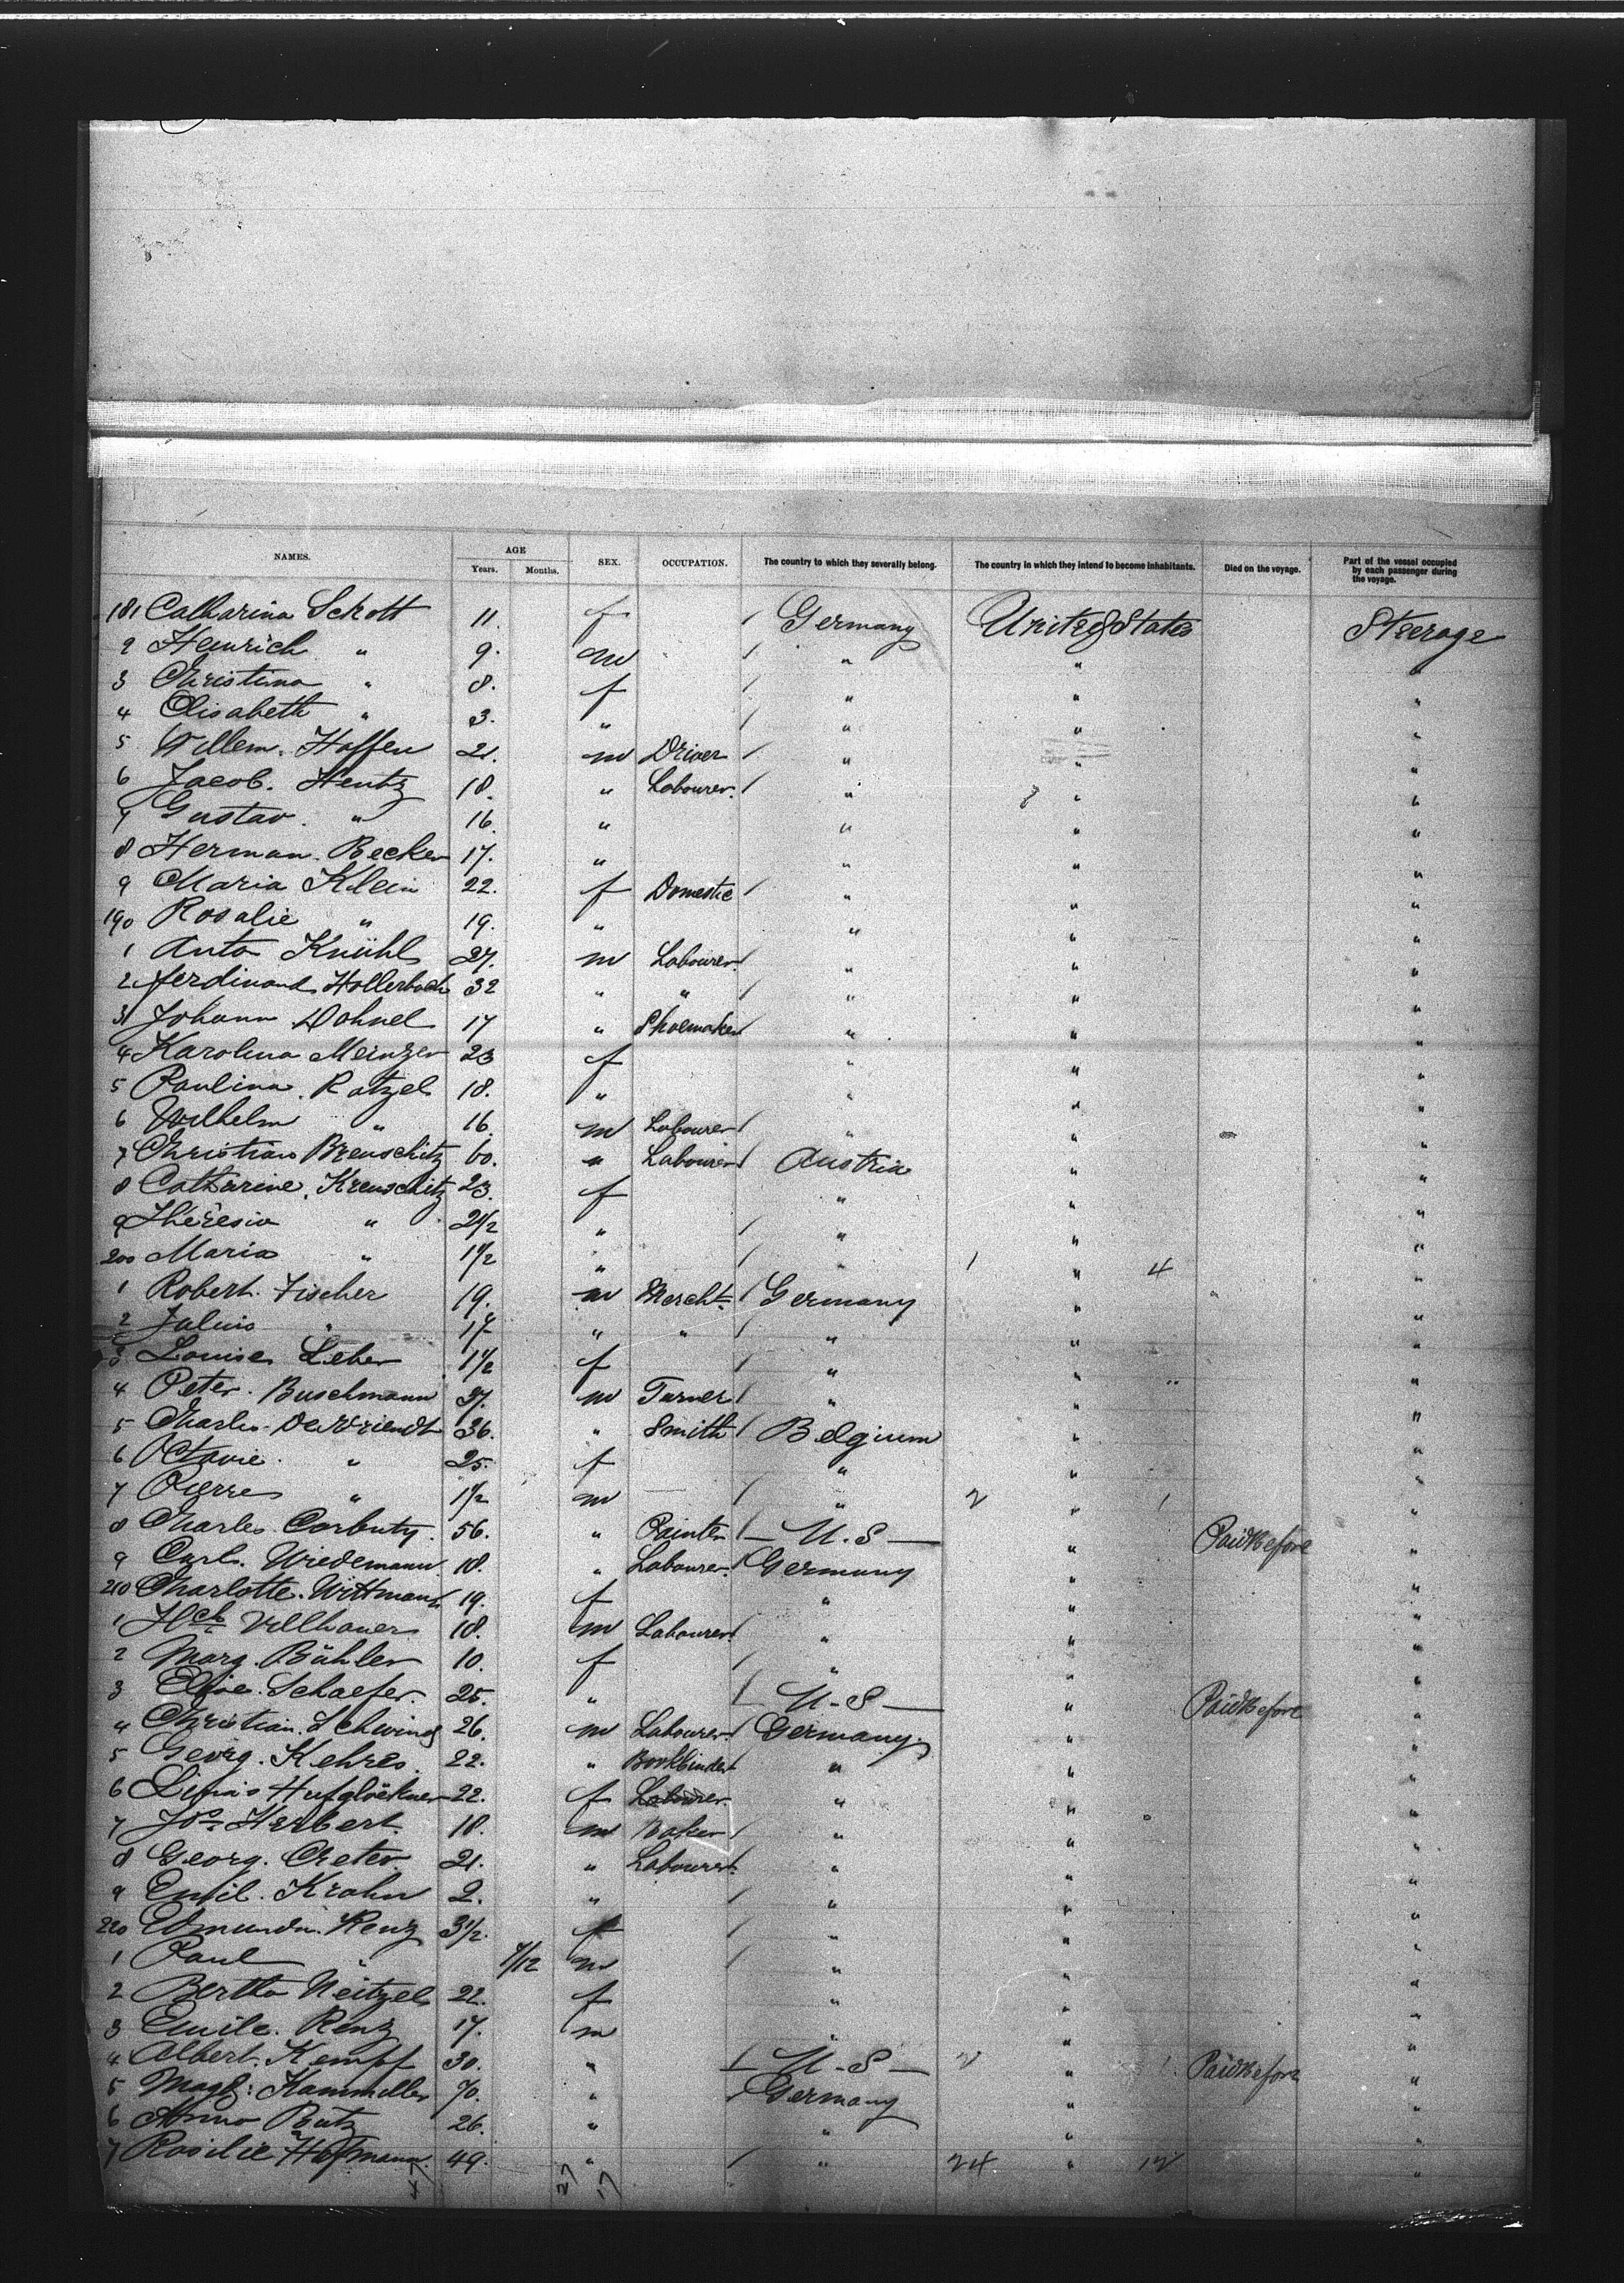 NAMES. AGE Years. Months. SEX. OCCUPATION. The country to which they severally belong. The country in which they intend to become inhabitants. Died on the voyage. Part of the vessel occupied by each passenger during the voyage.
181 Catharina Schott 11. f / Germany United States Steerage
2 Heinrich " 9. m / " " "
3 Christina " 8. f / " " "
4 Elisabeth " 3. " / " " "
5 Willem. Hoffen 21. m Driver / " " "
6 Jacob. Hentz 18. " Labourer. / " " "
7 Gustav. " 16. " " " "
8 Herman. Becker 17. " " " "
9 Maria Klein 22. f Domestic / " " "
190 Rosalie " 19. " " " "
1 Anto Knühl 27. m Labourer. / " " "
2 Ferdinand Hollerbach 32 " " / " " "
3 Johann Dohnel 17 " Shoemaker " " "
4 Karolina Meinzer 23 f " " "
5 Paulina. Ratzel 18. " " " "
6 Wilhelm " 16. m Labourer / " " "
7 Christian Breuschitz 60. " Labourer / Austria " "
8 Catharine. Kreuschitz 23. f " " "
9 Théresia " 2 1/2 " / " " "
200 Maria " 1 1/2 " / " 1 " 4 "
1 Robert. Fischer 19. m Mercht. / Germany " "
2 Julius " 17 " " / " " "
3 Louise Leber 1 1/2 f / " " "
4 Peter. Buschmann 37. m Turner / " " "
5 Charles. DeVriendt 36. " Smith / Belgium " "
6 Octavie. " 25. f " " "
7 Pierre " 1 1/2 m / " 2 " 1 "
8 Charles. Corbuty. 56. " Painter / — U.S — " Paid before "
9 Carl. Wiedemann. 18. " Labourer. / Germany " "
210 Charlotte. Wittmann 19. f " " "
1 Hch Vellhauer 18. m Labourer. / " " "
2 Marg. Bühler 10. f / " " "
3 Elise. Schaefer. 25. " / — U-S — " Paid before "
4 Christian. Schwind 26. m Labourer. / Germany. " "
5 Georg. Kehres. 22. " Bookbinder / " " "
6 Hufglöckner 22. f Labourer. " " "
7 Jos. Herbert. 18. m Baker / " " "
8 Georg. 21. " Labourer. / " " "
9 Emil. Krohn 2. " / " " "
220 Renz 3 1/2. f / " " "
1 Paul " 7/12 m / " " "
2 Bertha Neitzel 22. f " " "
3 Emile. Renz 17. m " " "
4 Albert. Kempf 30. " / — U-S — " Paid before "
5 Magd: Kammeller 70. " / Germany " "
6 Anna Butz 26. " " " "
7 Rosilie Hofmann. 49. " / " 24 " 12 "
27 17